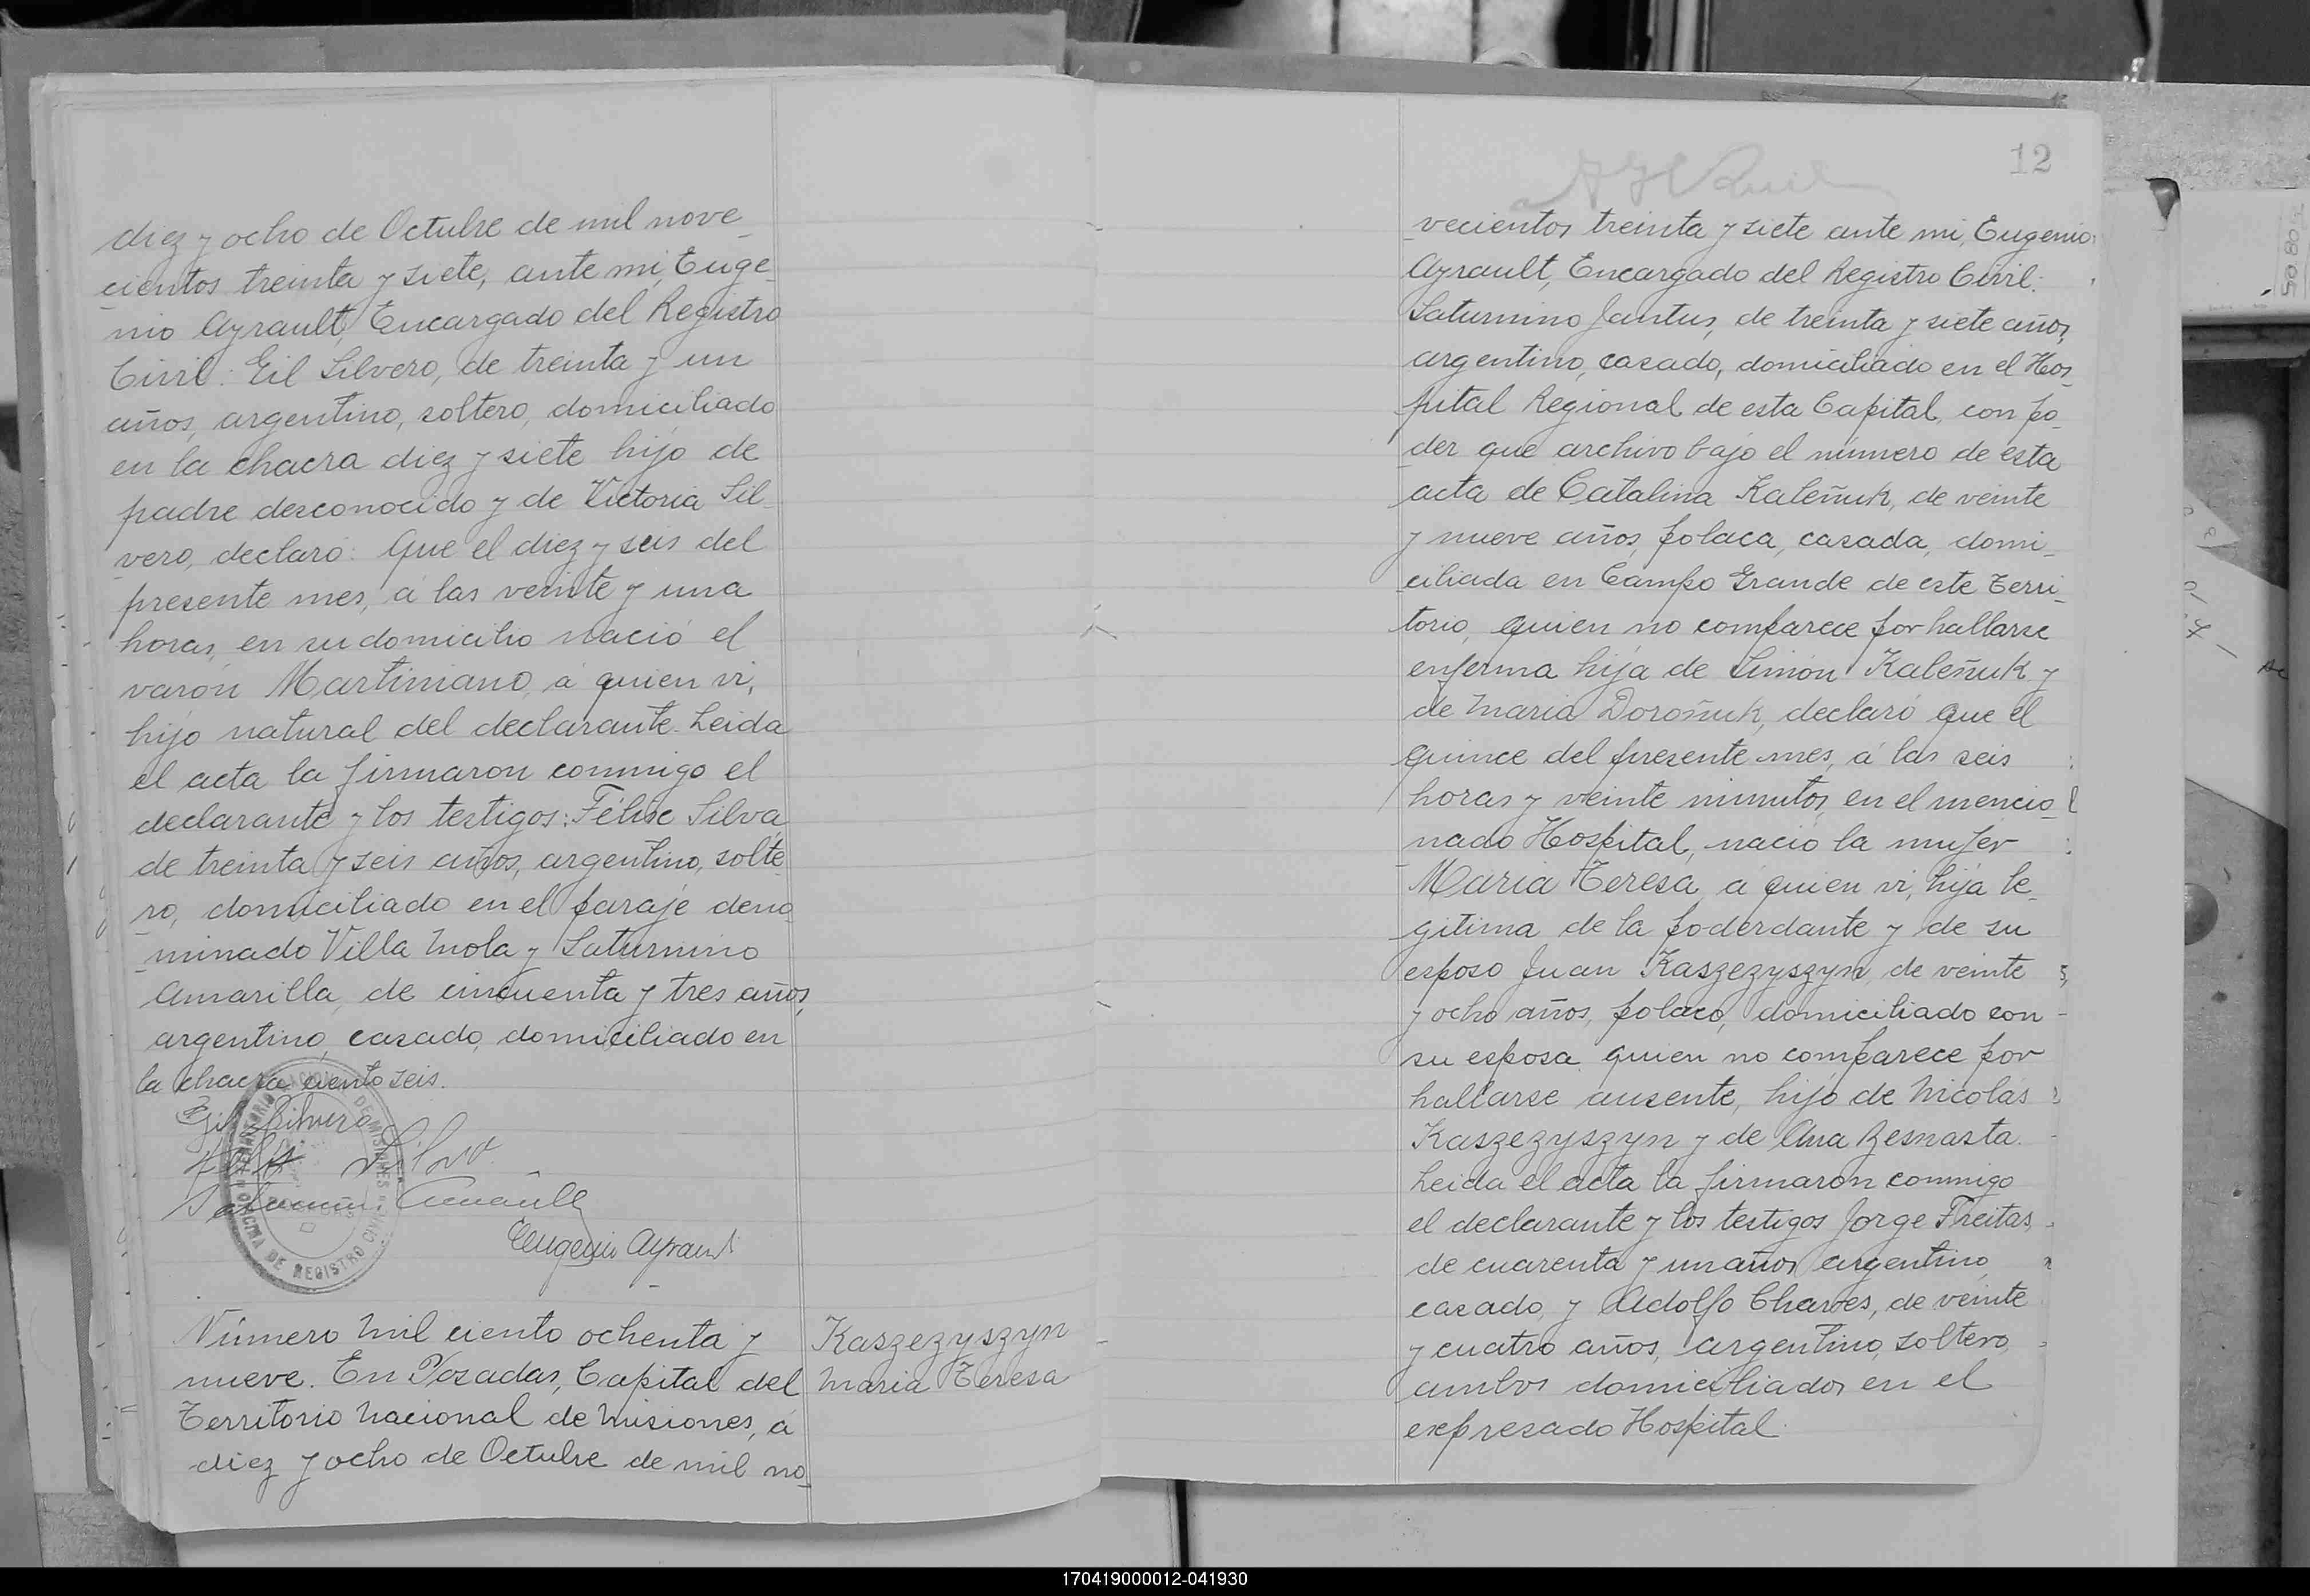 diez y ocho de Octubre de mil nove_
_cientos treinta y siete, ante mi, Euge_
_nio Ayrault, Encargado del Registro
Civil: Gil Silvero, de treinta y un
años, argentino, soltero, domiciliado
en la chacra diez y siete hijo de
padre desconocido y de Victoria Sil_
_vero, declaró: Que el diez y seis del
presente mes, á las veinte y una
horas, en su domicilio nació el
varón Martiniano, á quien vi,
hijo natural del declarante. Leida
el acta la firmaron conmigo el
declarante y los testigos: Félix Silva,
de treinta y seis años, argentino, solte_
_ro, domiciliado en el paraje deno_
_minado Villa Mola y Saturnino
Amarilla, de cincuenta y tres años,
argentino, casado, domiciliado en
la chacra ciento seis.
Gil Silvero
Silva
Eugenio Ayrault
OFICINA DE REGISTRO CIVIL
DE MISIONES
Número mil ciento ochenta y
nueve. En Posadas, Capital del
Territorio Nacional de Misiones, á
diez y ocho de Octubre de mil no_
Kaszezyszyn
Maria Teresa
12
_vecientos treinta y siete ante mi, Eugenio
Ayrault, Encargado del Registro Civil:
Saturnino Jantus, de treinta y siete años,
argentino, casado, domiciliado en el Hos_
pital Regional de esta Capital, con po_
_der que archivo bajo el número de esta
acta de Catalina Kaleñuk, de veinte
y nueve años, polaca, casada, domi_
_ciliada en Campo Grande de este Terri_
torio, quien no comparece por hallarse
enferma hija de Simón Kaleñuk y
de Maria Doroñuk, declaró que el
quince del presente mes, á las seis
horas y veinte minutos, en el mencio_
_nado Hospital, nació la mujer
Maria Teresa, á quien vi, hija le_
_gitima de la poderdante y de su
esposo Juan Kaszezyszyn, de veinte
y ocho años, polaco, domiciliado con
su esposa quien no comparece por
hallarse ausente, hijo de Nicolás
Kaszezyszyn y de Ana Besnasta.
Leida el acta la firmaron conmigo
el declarante y los testigos Jorge Freitas,
de cuarenta y un años argentino,
casado, y Adolfo Chaves, de veinte
y cuatro años, argentino, soltero,
ambos domiciliados en el
expresado Hospital.
170419000012-041930